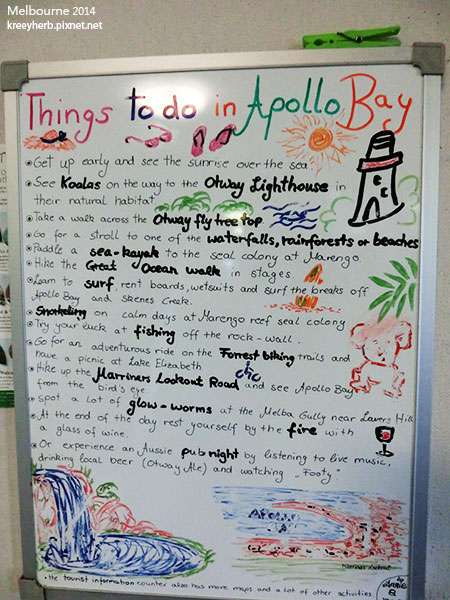 Melbourne 2014
kreeyherb.pixnet.net
Things to do in Apollo Bay
Get up early and see the sunrise over the sea.
See Koalas on the way to the Otway Lighthouse in
their natural habitat
Take a walk across the Otway fly tree top
Go for a stroll to one of the waterfalls, rainforests or beaches
Paddle a sea-kayak to the seal colony at Marengo.
Hike the Great Ocean walk in stages
Learn to surf, rent boards, wetsuits and surf the breaks off
Apollo Bay and Skenes Creek.
Snorkeling on calm days at Marengo reef seal colony
Try your luck at fishing off the rock-wall.
Go for an adventurous ride on the Forrest biking trails and
have a picnic at Lake Elizabeth
Hike up the Marriners Lookout Road and see Apollo Bay
from the bird's eye.
Spot a lot of glow-worms at the Melba Gully near Lavers Hill
At the end of the day rest yourself by the fire with
a glass of wine.
Or experience an Aussie pub night by listening to live music,
drinking local beer (Otway Ale) and watching „Footy"
APOLLO BAY
the tourist information counter also has more maps and a lot of other activities
by
Annie